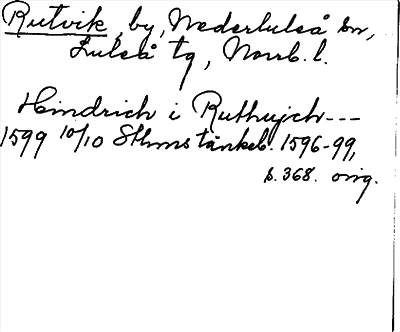 Rutvik, by, Nederluleå sn,
Luleå tg, Norrb. l.
Hindrich i Ruthwich ---
1599 10/10 Sthms tänkeb. 1596-99,
s. 368. orig.